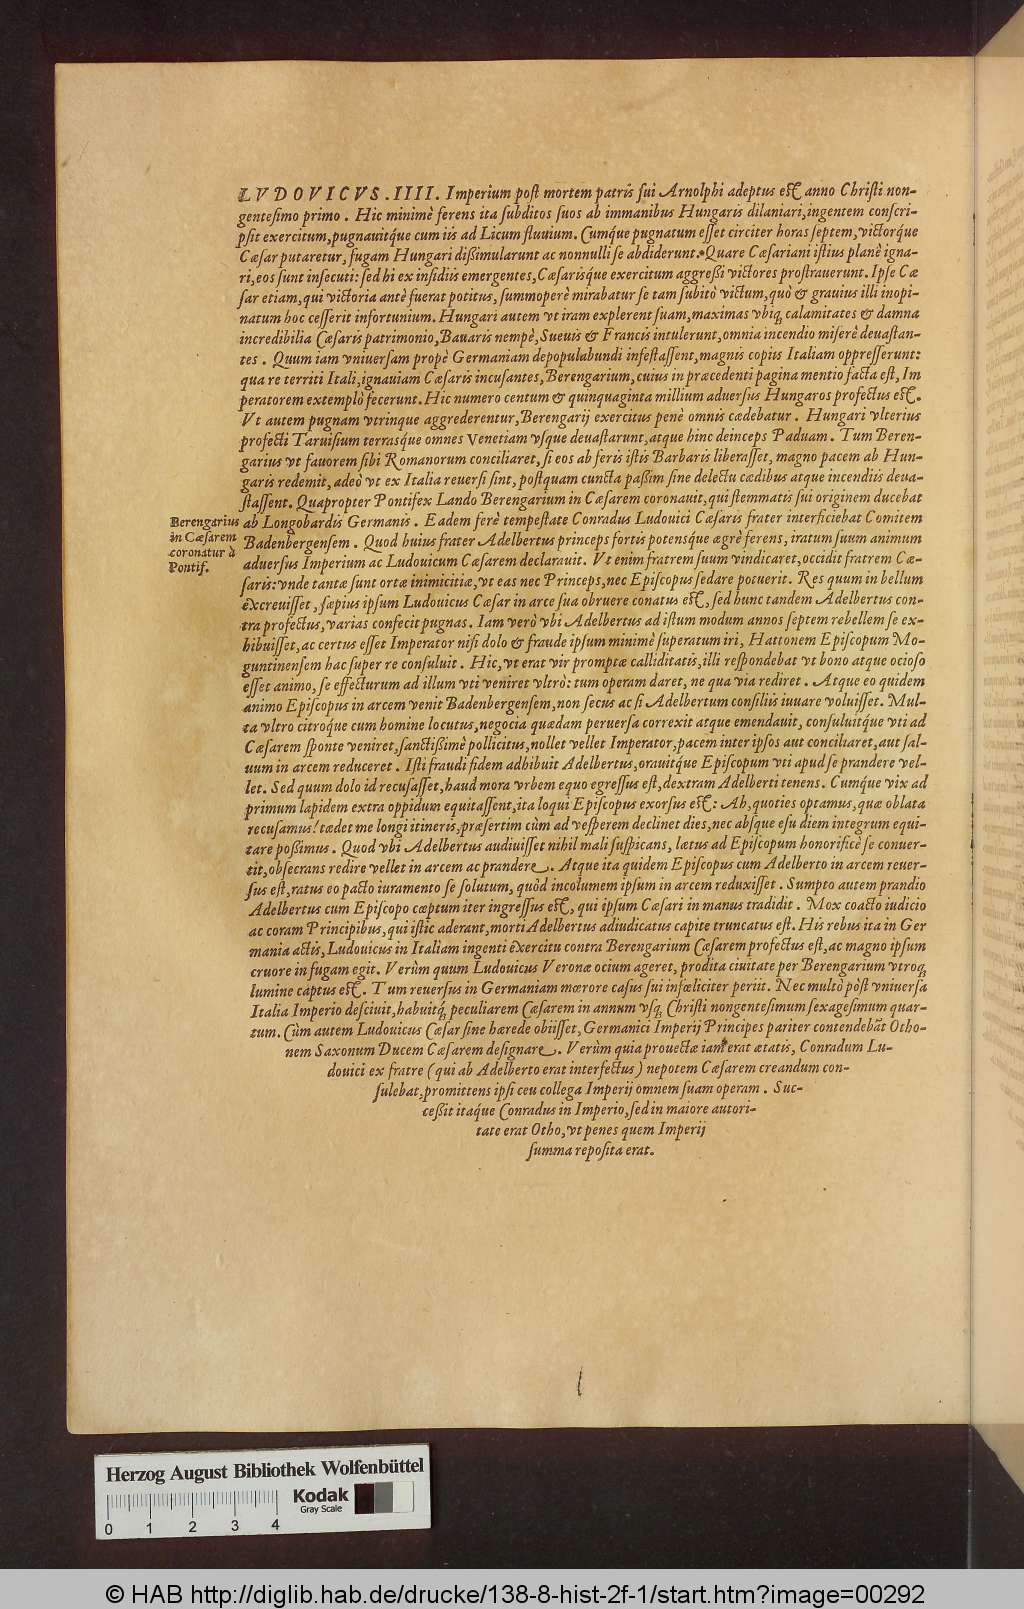 LVDOVICVS.IIII. Imperium post mortem patris sui Arnolphi adeptus est anno Christi non-
gentesimo primo. Hic minimè ferens ita subditos suos ab immanibus Hungaris dilaniari, ingentem conscri-
psit exercitum, pugnauitq́ue cum iis ad Licum fluuium. Cumque pugnatum esset circiter horas septem, victorq́ue
Cæsar putaretur, fugam Hungari dißimularunt ac nonnulli se abdiderunt. Quare Cæsariani istius planè igna-
ri, eos sunt insecuti: sed hi ex insidiis emergentes, Cæsarisque exercitum aggreßi victores prostrauerunt. Ipse Cæ
sar etiam, qui victoria antè fuerat potitus, summoperè mirabatur se tam subitò victum, quò & grauius illi inopi-
natum hoc cesserit infortunium. Hungari autem vt iram explerent suam, maximas vbiq; calamitates & damna
incredibilia Cæsaris patrimonio, Bauaris nempè, Sueuis & Francis intulerunt, omnia incendio miserè deuastan-
tes. Quum iam vniuersam propè Germaniam depopulabundi infestassent, magnis copiis Italiam oppresserunt:
qua re territi Itali, ignauiam Cæsaris incusantes, Berengarium, cuius in præcedenti pagina mentio facta est, Im
peratorem extemplò fecerunt. Hic numero centum & quinquaginta millium aduersus Hungaros profectus est.
Vt autem pugnam vtrinque aggrederentur, Berengarij exercitus penè omnis cædebatur. Hungari vlterius
profecti Taruisium terrasque omnes Venetiam vsque deuastarunt, atque hinc deinceps Paduam. Tum Beren-
garius vt fauorem sibi Romanorum conciliaret, si eos ab feris istis Barbaris liberasset, magno pacem ab Hun-
garis redemit, adeò vt ex Italia reuersi sint, postquam cuncta paßim sine delectu cædibus atque incendiis deua-
stassent. Quapropter Pontifex Lando Berengarium in Cæsarem coronauit, qui stemmatis sui originem ducebat
Berengarius
in Cæsarem
coronatur à
Pontif.
ab Longobardis Germanis. Eadem ferè tempestate Conradus Ludouici Cæsaris frater interficiebat Comitem
Badenbergensem. Quod huius frater Adelbertus princeps fortis potensque ægrè ferens, iratum suum animum
aduersus Imperium ac Ludouicum Cæsarem declarauit. Vt enim fratrem suum vindicaret, occidit fratrem Cæ-
saris: vnde tantæ sunt ortæ inimicitiæ, vt eas nec Princeps, nec Episcopus sedare potuerit. Res quum in bellum
excreuisset, sæpius ipsum Ludouicus Cæsar in arce sua obruere conatus est, sed hunc tandem Adelbertus con-
tra profectus, varias confecit pugnas. Iam verò vbi Adelbertus ad istum modum annos septem rebellem se ex-
hibuisset, ac certus esset Imperator nisi dolo & fraude ipsum minimè superatum iri, Hattonem Episcopum Mo-
guntinensem hac super re consuluit. Hic, vt erat vir promptæ calliditatis, illi respondebat vt bono atque ocioso
esset animo, se effecturum ad illum vti veniret vltrò: tum operam daret, ne qua via rediret. Atque eo quidem
animo Episcopus in arcem venit Badenbergensem, non secus ac si Adelbertum consiliis iuuare voluisset. Mul-
ta vltro citroque cum homine locutus, negocia quædam peruersa correxit atque emendauit, consuluitque vti ad
Cæsarem sponte veniret, sanctißimè pollicitus, nollet vellet Imperator, pacem inter ipsos aut conciliaret, aut sal-
uum in arcem reduceret. Isti fraudi fidem adhibuit Adelbertus, orauitq́ue Episcopum vti apud se prandere vel-
let. Sed quum dolo id recusasset, haud mora vrbem equo egressus est, dextram Adelberti tenens. Cumque vix ad
primum lapidem extra oppidum equitassent, ita loqui Episcopus exorsus est: Ah, quoties optamus, quæ oblata
recusamus! tædet me longi itineris, præsertim cùm ad vesperem declinet dies, nec absque esu diem integrum equi-
tare poßimus. Quod vbi Adelbertus audiuisset nihil mali suspicans, lætus ad Episcopum honorificè se conuer-
tit, obsecrans redire vellet in arcem ac prandere. Atque ita quidem Episcopus cum Adelberto in arcem reuer-
sus est, ratus eo pacto iuramento se solutum, quòd incolumem ipsum in arcem reduxisset. Sumpto autem prandio
Adelbertus cum Episcopo cæptum iter ingressus est, qui ipsum Cæsari in manus tradidit. Mox coacto iudicio
ac coram Principibus, qui istic aderant, morti Adelbertus adiudicatus capite truncatus est. His rebus ita in Ger
mania actis, Ludouicus in Italiam ingenti exercitu contra Berengarium Cæsarem profectus est, ac magno ipsum
cruore in fugam egit. Verùm quum Ludouicus Veronæ ocium ageret, prodita ciuitate per Berengarium vtroq;
lumine captus est. Tum reuersus in Germaniam mœrore casus sui infæliciter periit. Nec multò pòst vniuersa
Italia Imperio desciuit, habuitq́; peculiarem Cæsarem in annum vsq; Christi nongentesimum sexagesimum quar-
tum. Cùm autem Ludouicus Cæsar sine hærede obiisset, Germanici Imperij Principes pariter contendebãt Otho-
nem Saxonum Ducem Cæsarem designare. Verùm quia prouectæ iam erat ætatis, Conradum Lu-
douici ex fratre (qui ab Adelberto erat interfectus) nepotem Cæsarem creandum con-
sulebat, promittens ipsi ceu collega Imperij omnem suam operam. Suc-
ceßit itaque Conradus in Imperio, sed in maiore autori-
tate erat Otho, vt penes quem Imperij
summa reposita erat.
Herzog August Bibliothek Wolfenbüttel
Kodak
Gray Scale
0 1 2 3 4
© HAB http://diglib.hab.de/drucke/138-8-hist-2f-1/start.htm?image=00292